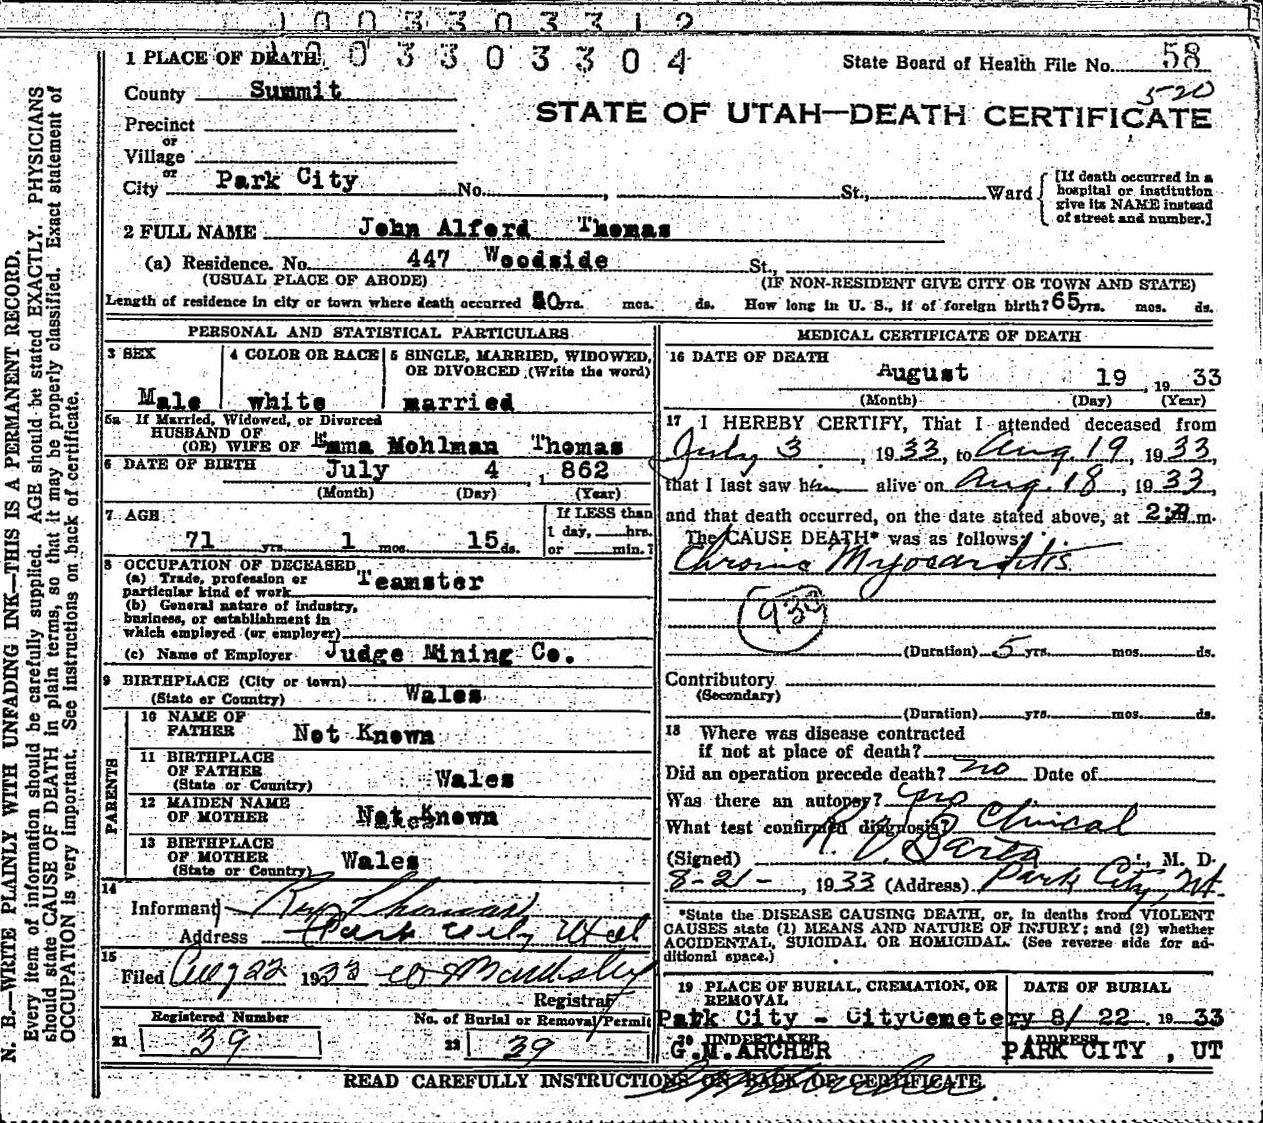 1 0 0 3 3 0 3 3 1 2
1 PLACE OF DEATH 1 0 0 3 3 0 3 3 0 4 State Board of Health File No. 58
520
County Summit
STATE OF UTAH—DEATH CERTIFICATE
Precinct
or
Village
or
City Park City No. , St., Ward
[If death occurred in a
hospital or institution
give its NAME instead
of street and number.]
2 FULL NAME John Alford Thomas
(a) Residence. No. 447 Woodside St.,
(USUAL PLACE OF ABODE) (IF NON-RESIDENT GIVE CITY OR TOWN AND STATE)
Length of residence in city or town where death occurred yrs. mos. ds. How long in U. S., if of foreign birth? 65 yrs. mos. ds.
PERSONAL AND STATISTICAL PARTICULARS
3 SEX 4 COLOR OR RACE 5 SINGLE, MARRIED, WIDOWED,
OR DIVORCED (Write the word)
Male white married
5a If Married, Widowed, or Divorced
HUSBAND OF
(OR) WIFE OF Emma Mohlman Thomas
6 DATE OF BIRTH July 4 , 1862
(Month) (Day) (Year)
7 AGE If LESS than
1 day, hrs.
71 yrs. 1 mos. 15 ds. or min.?
8 OCCUPATION OF DECEASED
(a) Trade, profession or
particular kind of work Teamster
(b) General nature of industry,
business, or establishment in
which employed (or employer)
(c) Name of Employer Judge Mining Co.
9 BIRTHPLACE (City or town)
(State or Country) Wales
PARENTS
10 NAME OF
FATHER Not Known
11 BIRTHPLACE
OF FATHER
(State or Country) Wales
12 MAIDEN NAME
OF MOTHER Not Known
13 BIRTHPLACE
OF MOTHER
(State or Country) Wales
14
Informant Thomas
Address Park City Utah
15
Filed Aug 22 1933
Registrar
Registered Number No. of Burial or Removal Permit
21 39 22 39
MEDICAL CERTIFICATE OF DEATH
16 DATE OF DEATH
August 19 , 1933
(Month) (Day) (Year)
17 I HEREBY CERTIFY, That I attended deceased from
July 3 , 1933, to Aug. 19, 1933,
that I last saw him alive on Aug. 18, 1933,
and that death occurred, on the date stated above, at m.
The CAUSE DEATH* was as follows:
Chronic Myocarditis
(Duration) 5 yrs. mos. ds.
Contributory
(Secondary)
(Duration) yrs. mos. ds.
18 Where was disease contracted
if not at place of death?
Did an operation precede death? no Date of
Was there an autopsy?
What test confirmed diagnosis? Clinical
(Signed) , M. D.
8-21- , 1933 (Address) Park City, Ut.
*State the DISEASE CAUSING DEATH, or, in deaths from VIOLENT
CAUSES state (1) MEANS AND NATURE OF INJURY; and (2) whether
ACCIDENTAL, SUICIDAL OR HOMICIDAL. (See reverse side for ad-
ditional space.)
19 PLACE OF BURIAL, CREMATION, OR
REMOVAL DATE OF BURIAL
Park City - City Cemetery 8/ 22 1933
20 UNDERTAKER ADDRESS
G.M.ARCHER PARK CITY , UT
READ CAREFULLY INSTRUCTIONS ON BACK OF CERTIFICATE
N. B.—WRITE PLAINLY WITH UNFADING INK—THIS IS A PERMANENT RECORD.
Every item of information should be carefully supplied. AGE should be stated EXACTLY. PHYSICIANS
should state CAUSE OF DEATH in plain terms, so that it may be properly classified. Exact statement of
OCCUPATION is very important. See instructions on back of certificate.